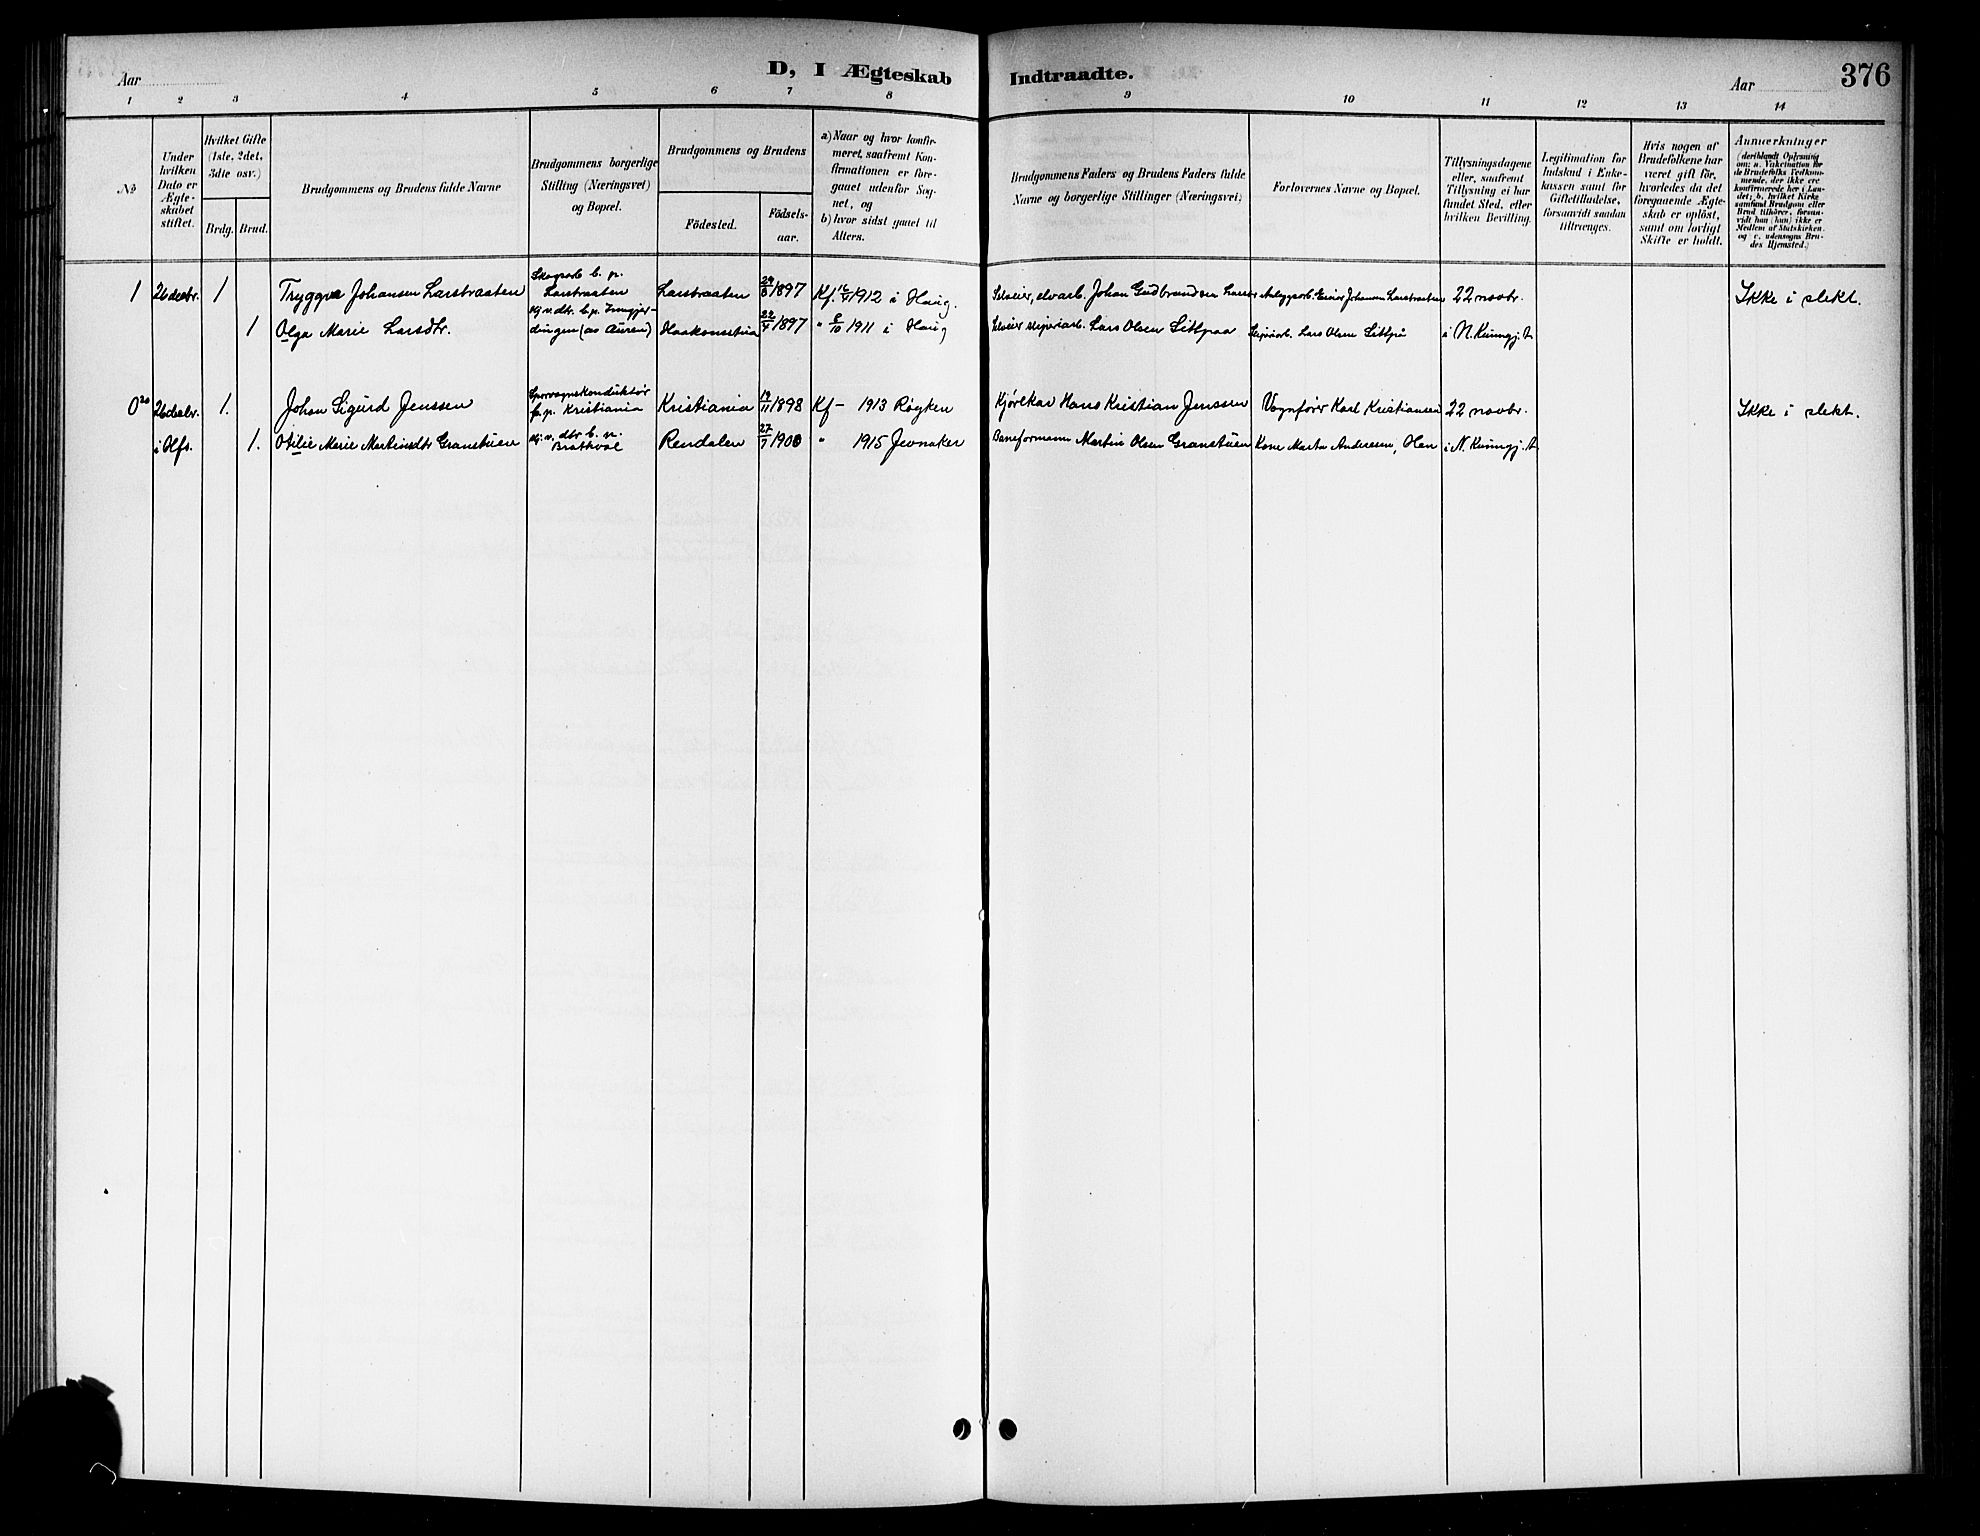 D, I Ægteskab Indtraadte. 376
Aar Aar
1 2 3 4 5 6 7 8 9 10 11 12 13 14
No
Under hvilken Dato er Ægte-skabet stiftet.
Hvilket Gifte (1ste, 2det, 3dte osv.)
Brdg. Brud.
Brudgommens og Brudens fulde Navne
Brudgommens borgerlige Stilling (Næringsvei) og Bopæl.
Brudgommens og Brudens
Födested.
Födsels-aar.
a) Naar og hvor konfir-meret, saafremt Kon-firmationen er fore-gaaet udenfor Sog-net, og
b) hvor sidst gaaet til Alters.
Brudgommens Faders og Brudens Faders fulde Navne og borgerlige Stillinger (Næringsvei)
Forlovernes Navne og Bopæl.
Tillysningsdagene eller, saafremt Tillysning ei har fundet Sted, efter hvilken Bevilling.
Legitimation for Indskud i Enke-kassen samt for Giftetilladelse, forsaavidt saadan tiltrænges.
Hvis nogen af Brudefolkene har været gift før, hvorledes da det foregaaende Ægte-skab er opløst, samt om lovligt Skifte er holdt.
Anmerkninger
(deriblandt Oplysning om: a. Vakcination for de Brudefolks Vedkom-mende, der ikke ere konfirmerede her i Lan-det; b. hvilket Kirke-samfund Brudgom eller Brud tilhører, forsaa-vidt han (hun) ikke er Medlem af Statskirken, og c. udensogns Bru-des Hjemsted.)
1 26 decbr. 1 Tryggve Johansen Larsbraaten Skogsarb. b. p. Larsbraaten Larsbraaten 24/8 1897 Kf. 16/9 1912 i Haug. Selveier, elvarb. Johan Gudbrandsen Anlegsarb. Einar Johansen Larsbraaten 22 novbr. Ikke i slekt.
1 Olga Marie Larsdtr. dingen (av Auren) Haakonsstua 22/4 1897 " 8/10 1911 i Haug Lars Olsen Sitlpaa Lars Olsen Sitlpå i N.
0 26 decbr. 1. Johan Sigurd Jenssen Sporvognskonduktør b. p. Kristiania Kristiania 19/11 1898 Kf - 1913 Røyken Kjørekar Hans Kristian Jenssen Vognfører Karl Kristiansen 22 novbr. Ikke i slekt.
i Olfs. 1. Otilie Marie Martinsdtr Granstuen Brattvol Rendalen 27/7 1900 " 1915 Jevnaker Baneformann Martin Olsen Granstuen Kone Marta Andersen, Olen i N.